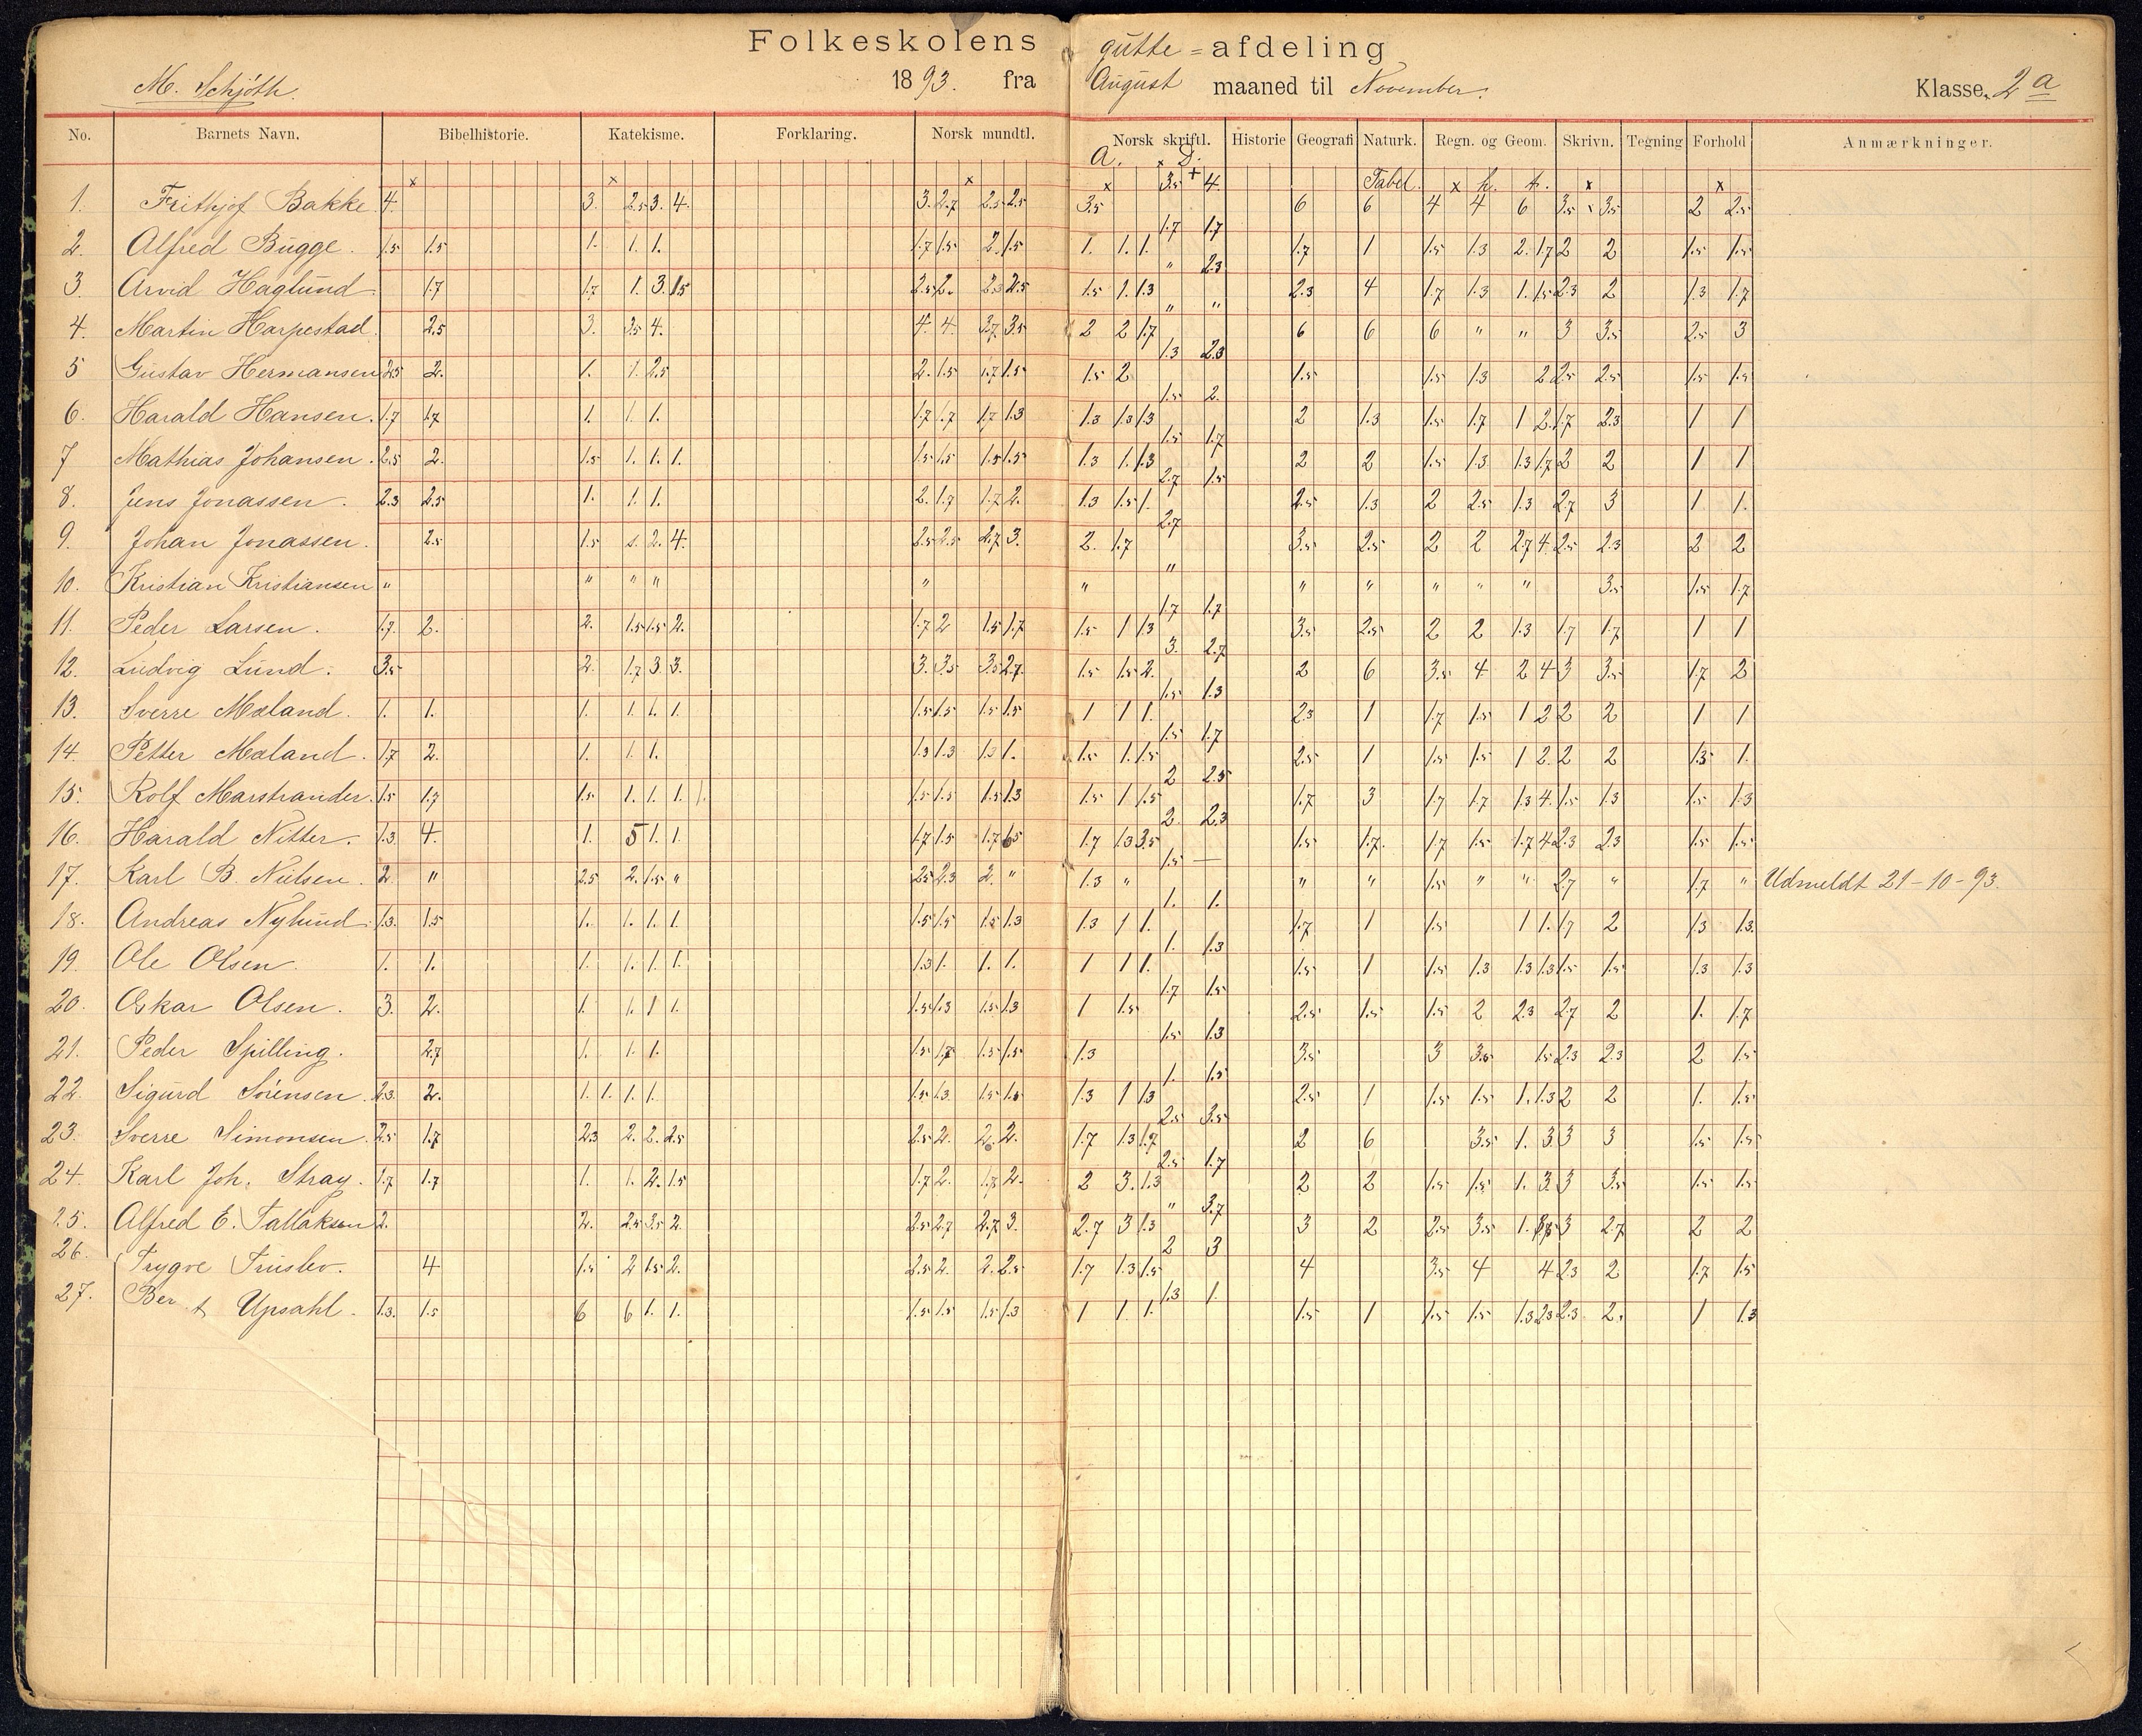 Folkeskolens gutte = afdeling
M. Schjöth. 1893. fra August maaned til November. Klasse 2 a
No. Barnets Navn. Bibelhistorie. Katekisme. Forklaring. Norsk mundtl. Norsk skriftl. Historie Geografi Naturk. Regn. og Geom. Skrivn. Tegning Forhold Anmærkninger.
A. x D.
x x x x + Tabel. x h. t. x x
1. Frithjof Bakke 4. 3. 2.5 3. 4. 3. 2.7 2.5 2.5 3.5 3.5 4. 6 6 4 4 6 3.5 3.5 2 2.5
2. Alfred Bugge. 1.5 1.5 1. 1. 1. 1.7 1.5 2. 1.5 1. 1. 1. 1.7 1.7 1.7 1 1.5 1.3 2. 1.7 2 2 1.5 1.5
3. Arvid Haglund 1.7 1.7 1. 3. 1.5 2.5 2. 2.3 2.5 1.5 1. 1.3 " 2.3 2.3 4 1.7 1.3 1. 1.5 2.3 2 1.3 1.7
4. Martin Harpestad. 2.5 3. 3.5 4. 4. 4. 3.7 3.5 2 2 1.7 " " 6 6 6 " " 3 3.5 2.5 3
5 Gustav Hermansen 2.5 2. 1. 1. 2.5 2. 1.5 1.7 1.5 1.5 2 1.3 2.3 1.5 1.5 1.3 2 2.5 2.5 1.5 1.5
6. Harald Hansen. 1.7 1.7 1. 1. 1. 1.7 1.7 1.7 1.3 1.3 1.3 1.3 1.5 2. 2 1.3 1.5 1.7 1 2. 1.7 2.3 1 1
7 Mathias Johansen. 2.5 2. 1.5 1. 1. 1. 1.5 1.5 1.5 1.5 1.3 1. 1.3 1.5 1.7 2 2 1.5 1.3 1.3 1.7 2 2 1 1
8. Jens Jonassen. 2.3 2.5 1. 1. 1. 2. 1.7 1.7 2. 1.3 1.5 1. 2.7 1.5 2.5 1.3 2 2.5 1.3 2.7 3 1 1.
9. Johan Jonassen. 2.5 1.5 1. 2. 4. 2.5 2.5 2.7 3. 2. 1.7 2.7 3.5 2.5 2 2 2.7 4. 2.5 2.3 2 2
10. Kristian Kristiansen " " " " " " " " " " " " 3.5 1.5 1.7
11. Peder Larsen. 1.7. 2. 2. 1.5 1.5 2. 1.7 2 1.5 1.7 1.5 1 1.3 1.7 1.7 3.5 2.5 2 2 1.3 1.7 1.7 1 1
12. Ludvig Lund. 3.5 2. 1.7 3. 3. 3. 3.5 3.5 2.7. 1.5 1.5 2. 3. 2.7 2 6 3.5 4 2 4 3 3.5 1.7 2
13. Sverre Mæland. 1. 1. 1. 1. 1. 1. 1.5 1.5 1.5 1.5 1 1 1. 1.5 1.3 2.3 1 1.7 1.5 1 2 2 2 1 1
14. Petter Mæland. 1.7 2. 1. 1. 1. 1.3 1.3 1.3 1. 1.5 1. 1.5 1.5 1.7 2.5 1 1.5 1.5 1 2. 2 2 1.3 1.
15. Rolf Marstrander. 1.5 1.7 1.5 1. 1. 1. 1. 1.5 1.5 1.5 1.3 1.5 1 1.5 2 2.5 1.7 3 1.7 1.7 1.3 4. 1.5 1.3 1.5 1.3
16. Harald Nitter. 1.3 4. 1. 5 1. 1. 1.7 1.5 1.7 1.5 1.7 1.3 3.5 2. 2.3 1.5 1.7. 1.7 1.5 1.7 4 2.3 2.3 1.5 1.5
17. Karl B. Nielsen. 2. " 2.5 2. 1.5 " 2.5 2.3 2. " 1.3 " 1.5 — " " 1.5 " " 2.7 " 1.7 " Udmeldt 21-10-93.
18. Andreas Nylund. 1.3. 1.5 1. 1. 1. 1. 1.5 1.5 1.5 1.3 1.3 1 1. 1. 1. 1.7 1 1.5 1 1. 1.7 2 1.3 1.3.
19. Ole Olsen. 1. 1. 1. 1. 1. 1. 1.3 1. 1. 1. 1 1 1. 1. 1.3 1.5 1 1.5 1.3 1.3 1.3 1.5 1.5 1.3 1.3
20. Oskar Olsen. 3. 2. 1. 1. 1 1. 1.5 1.3 1.5 1.3 1 1.5 1.7 1.5 2.5 1.5 1.5 2 2.3 2.7 2 1. 1.7
21. Peder Spilling. 2.7 1. 1. 1. 1.5 1.7 1.5 1.5 1.3 1.5 1.3 3.5 3 3.5 1.5 2.3 2.3 2 1.5
22. Sigurd Sörensen. 2.3. 2. 1. 1. 1. 1. 1.5 1.3 1.5 1.5 1.3 1 1.3 1. 1.5 2.5 1 1.5 1.5 1. 1.3 2 2 1. 1.5
23. Sverre Simonsen. 2.5 1.7 2.3 2. 2. 2.5 2.5 2. 2. 2. 1.7 1.3 1.7 2.5 3.5 2 6 3.5 1. 3 3 3 1.5 1.5
24. Karl Joh. Stray. 1.7 1.7 1. 1. 2. 1.5 1.7 2. 1.7 2. 2 3. 1.3 2.5 1.7 2 2 1.5 1.5 1. 3. 3 3.5 1.5 1.5
25. Alfred E. Tallaksen 2. 2. 2.5 3.5 2. 2.5 2.7 2.7 3. 2.7 3 1.3 " 3.7 3 2 2.5 3.5 1. 3 2.7 2 2
26. Trygve Truslev. 4 1.5 2 1.5 2. 2.5 2. 2. 2.5 1.7 1.3 1.5 2 3 4 3.5 4 4 2.3 2 1.7 1.5
27. Ber t Upsahl. 1.3. 1.5 6 6 1. 1. 1.5 1.5 1.5 1.3 1 1 1. 1.3 1. 1.5 1 1.5 1.5 1.3 2.3 2.3 2. 1 1.3